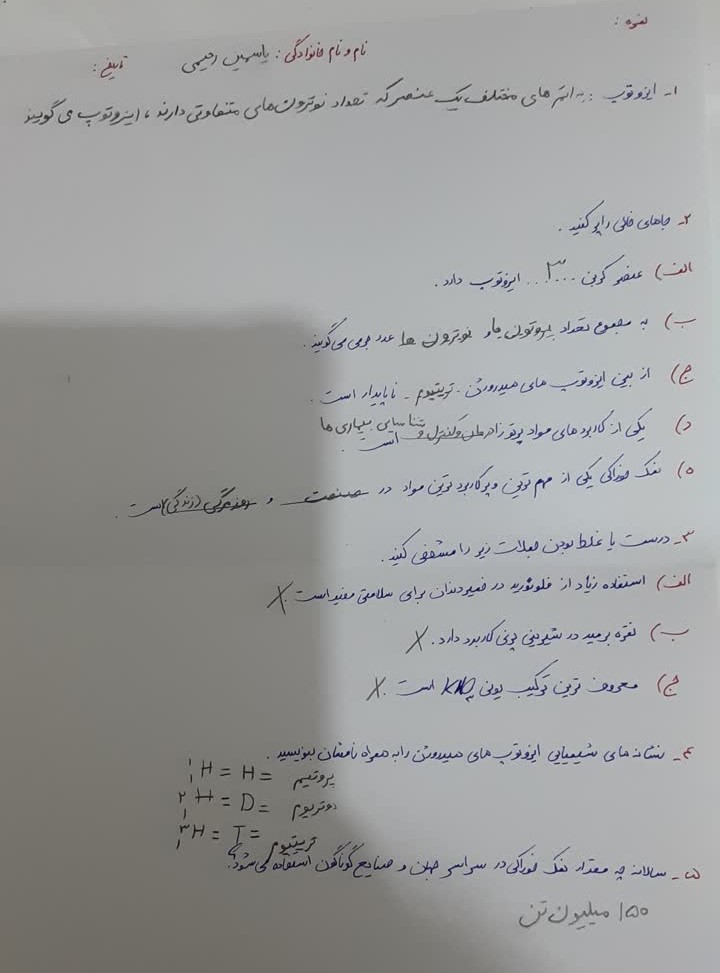 نمره :
نام و نام خانوادگی : یاسمین رحیمی تاریخ :
۱- ایزوتوپ : به اتم های مختلف یک عنصر که تعداد نوترون های متفاوتی دارند ، ایزوتوپ می گویند
۲- جاهای خالی را پر کنید .
الف) عنصر کربن ...۳... ایزوتوپ دارد .
ب) به مجموع تعداد پروتون ها و نوترون ها عدد جرمی می گویند .
ج) از بین ایزوتوپ های هیدروژن - تریتیوم - ناپایدار است .
د) یکی از کاربردهای مواد پرتوزا درمان و کنترل و شناسایی بیماری ها است .
ه) نمک خوراکی یکی از مهم ترین و پر کاربرد ترین مواد در صنعت و (زندگی) است .
۳- درست یا غلط بودن جملات زیر را مشخص کنید .
الف) استفاده زیاد از فلوئورید در خمیر دندان برای سلامتی مفید است . X
ب) نقره برمید در شیرینی پزی کاربرد دارد . X
ج) معروف ترین ترکیب یونی KNO₃ است . X
۴- نشانه های شیمیایی ایزوتوپ های هیدروژن را به همراه نامشان بنویسید .
¹₁H = H = پروتیم
²₁H = D = دوتریوم
³₁H = T = تریتیوم
۵- سالانه چه مقدار نمک خوراکی در سراسر جهان و صنایع گوناگون استفاده می شود؟
۱۵۰ میلیون تن